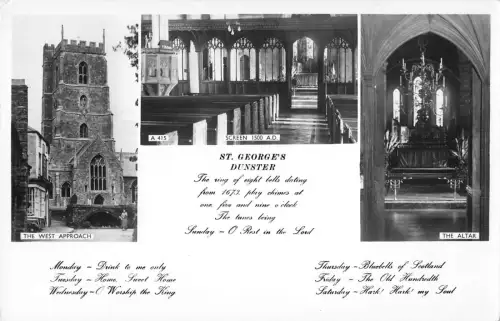 A 415
SCREEN 1500 A.D.
THE WEST APPROACH
THE ALTAR
ST. GEORGE'S
DUNSTER
The ring of eight bells dating
from 1673, play chimes at
one, five and nine o'clock
The tunes being
Sunday – O Rest in the Lord
Monday – Drink to me only
Tuesday – Home, Sweet Home
Wednesday – O Worship the King
Thursday – Bluebells of Scotland
Friday – The Old Hundredth
Saturday – Hark! Hark! my Soul